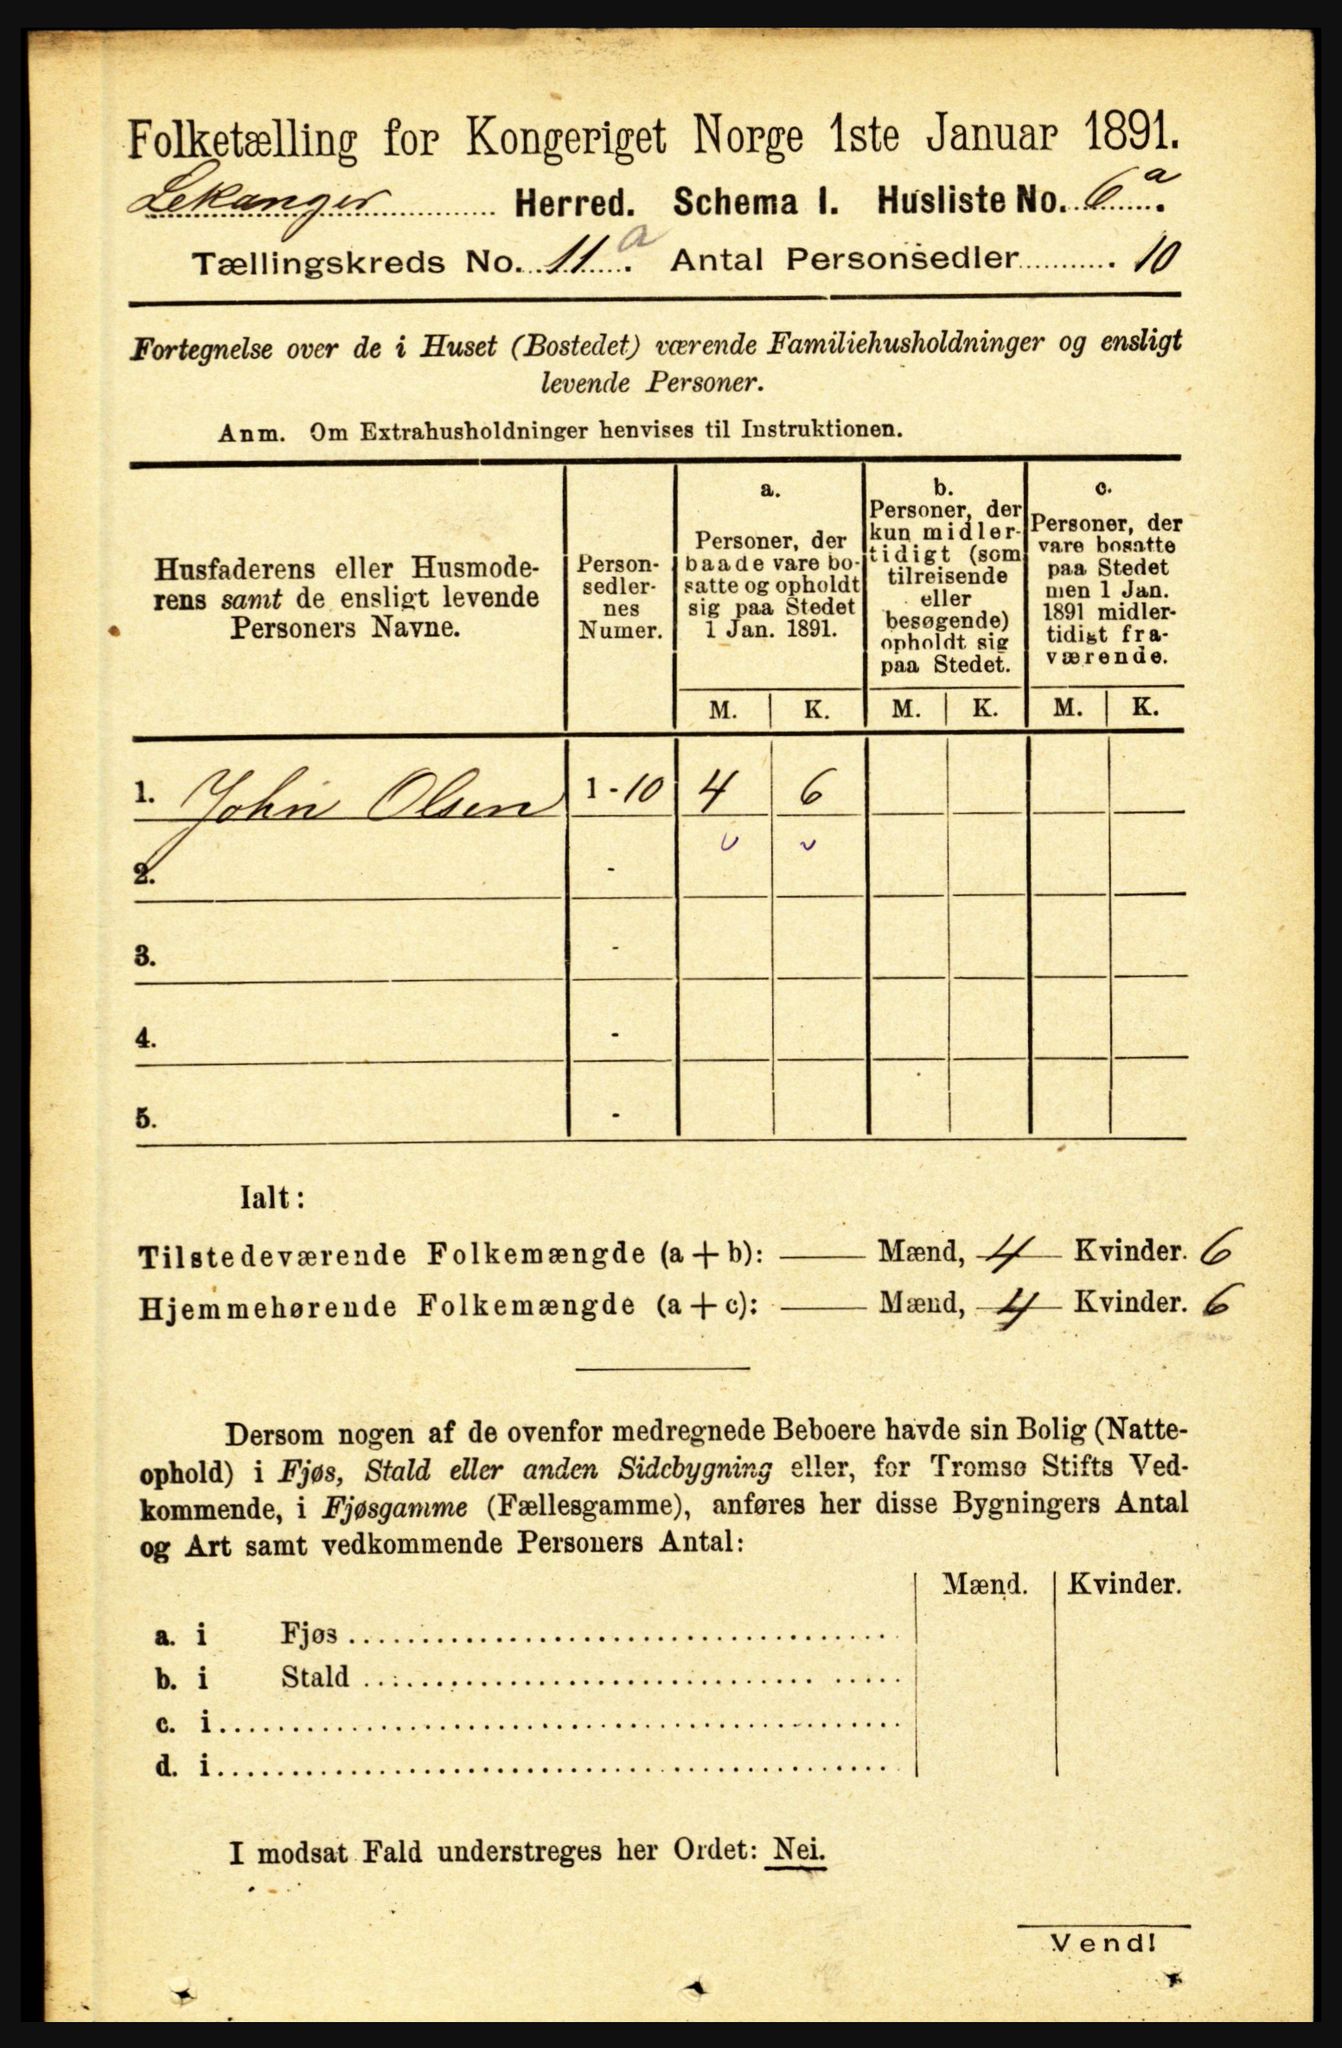 Folketælling for Kongeriget Norge 1ste Januar 1891.
Lekanger Herred. Schema I. Husliste No. 6 a.
Tællingskreds No. 11 a. Antal Personsedler 10
Fortegnelse over de i Huset (Bostedet) værende Familiehusholdninger og ensligt
levende Personer.
Anm. Om Extrahusholdninger henvises til Instruktionen.
Husfaderens eller Husmode-
rens samt de ensligt levende
Personers Navne.
Person-
sedler-
nes
Numer.
a.
Personer, der
baade vare bo-
satte og opholdt
sig paa Stedet
1 Jan. 1891.
b.
Personer, der
kun midler-
tidigt (som
tilreisende
eller
besøgende)
opholdt sig
paa Stedet.
c.
Personer, der
vare bosatte
paa Stedet
men 1 Jan.
1891 midler-
tidigt fra-
værende.
M. K. M. K. M. K.
1. John Olsen 1-10 4 6
2. -
3. -
4. -
5. -
Ialt:
Tilstedeværende Folkemængde (a+b): Mænd, 4 Kvinder. 6
Hjemmehørende Folkemængde (a+c): Mænd, 4 Kvinder. 6
Dersom nogen af de ovenfor medregnede Beboere havde sin Bolig (Natte-
ophold) i Fjøs, Stald eller anden Sidebygning eller, for Tromsø Stifts Ved-
kommende, i Fjøsgamme (Fællesgamme), anføres her disse Bygningers Antal
og Art samt vedkommende Personers Antal:
Mænd. Kvinder.
a. i Fjøs
b. i Stald
c. i
d. i
I modsat Fald understreges her Ordet: Nei.
Vend!